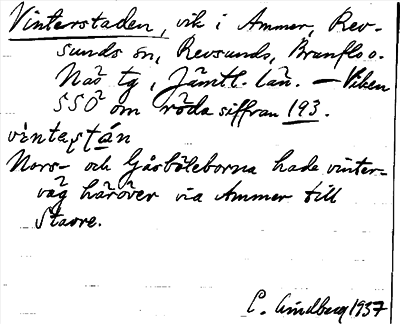 Vinterstaden, vik i Ammer, Rev-
sunds sn, Revsunds, Brunflo o.
Näs tg, Jämtl. län. — Viken
SSÖ om röda siffran 193.
vintastán
Nors- och Gåsböleborna hade vinter-
väg häröver via Ammer till
Stavre.
C. Lindberg 1937